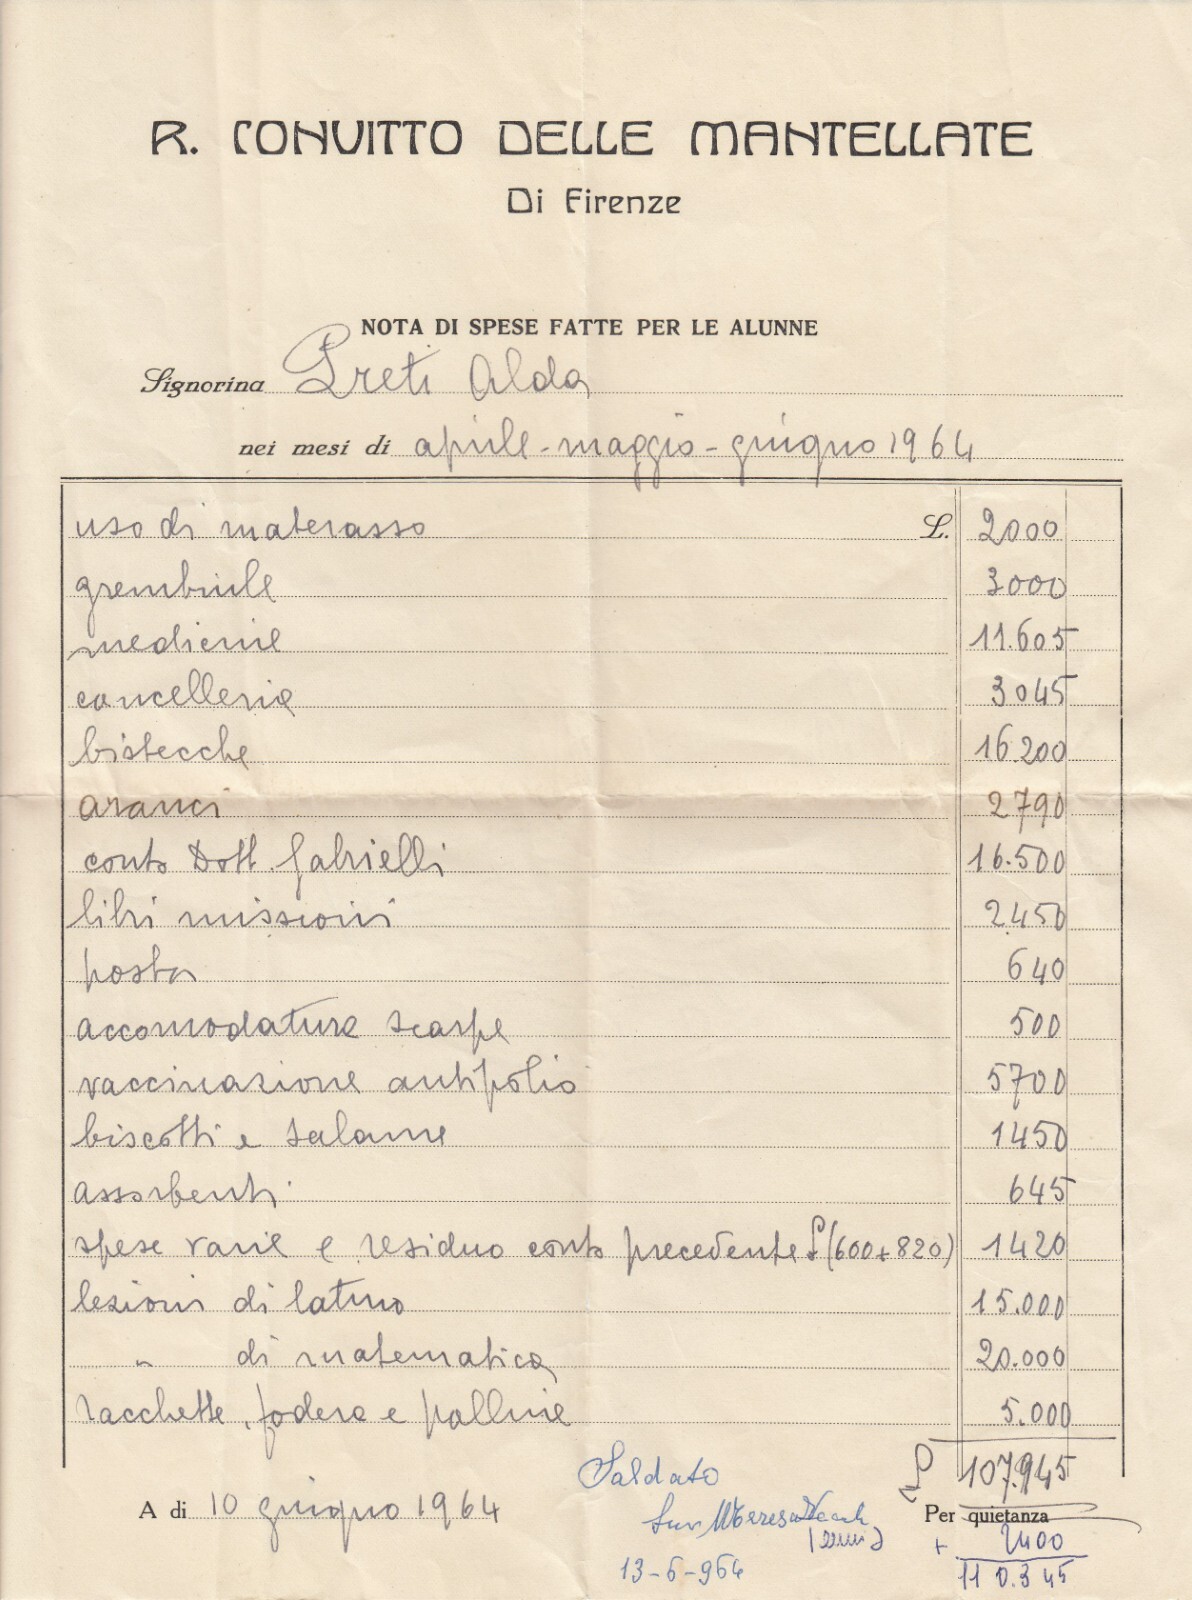 R. CONVITTO DELLE MANTELLATE
Di Firenze
NOTA DI SPESE FATTE PER LE ALUNNE
Signorina Preti Alda
nei mesi di aprile-maggio-giugno 1964
uso di materasso L. 2000
grembiule 3000
medicine 11.605
cancelleria 3045
bistecche 16.200
aranci 2790
conto Dott. Gabrielli 16.500
libri missioni 2.450
posta 640
accomodatura scarpe 500
vaccinazione antipolio 5700
biscotti e salame 1450
assorbenti 645
spese varie e residuo conto precedente £(600+820) 1420
lezioni di latino 15.000
" di matematica 20.000
racchette, fodera e palline 5.000
£ 107.945
Saldato
A dì 10 giugno 1964
Suor M Teresa
Per quietanza
+ 2400
13-6-964
110.345